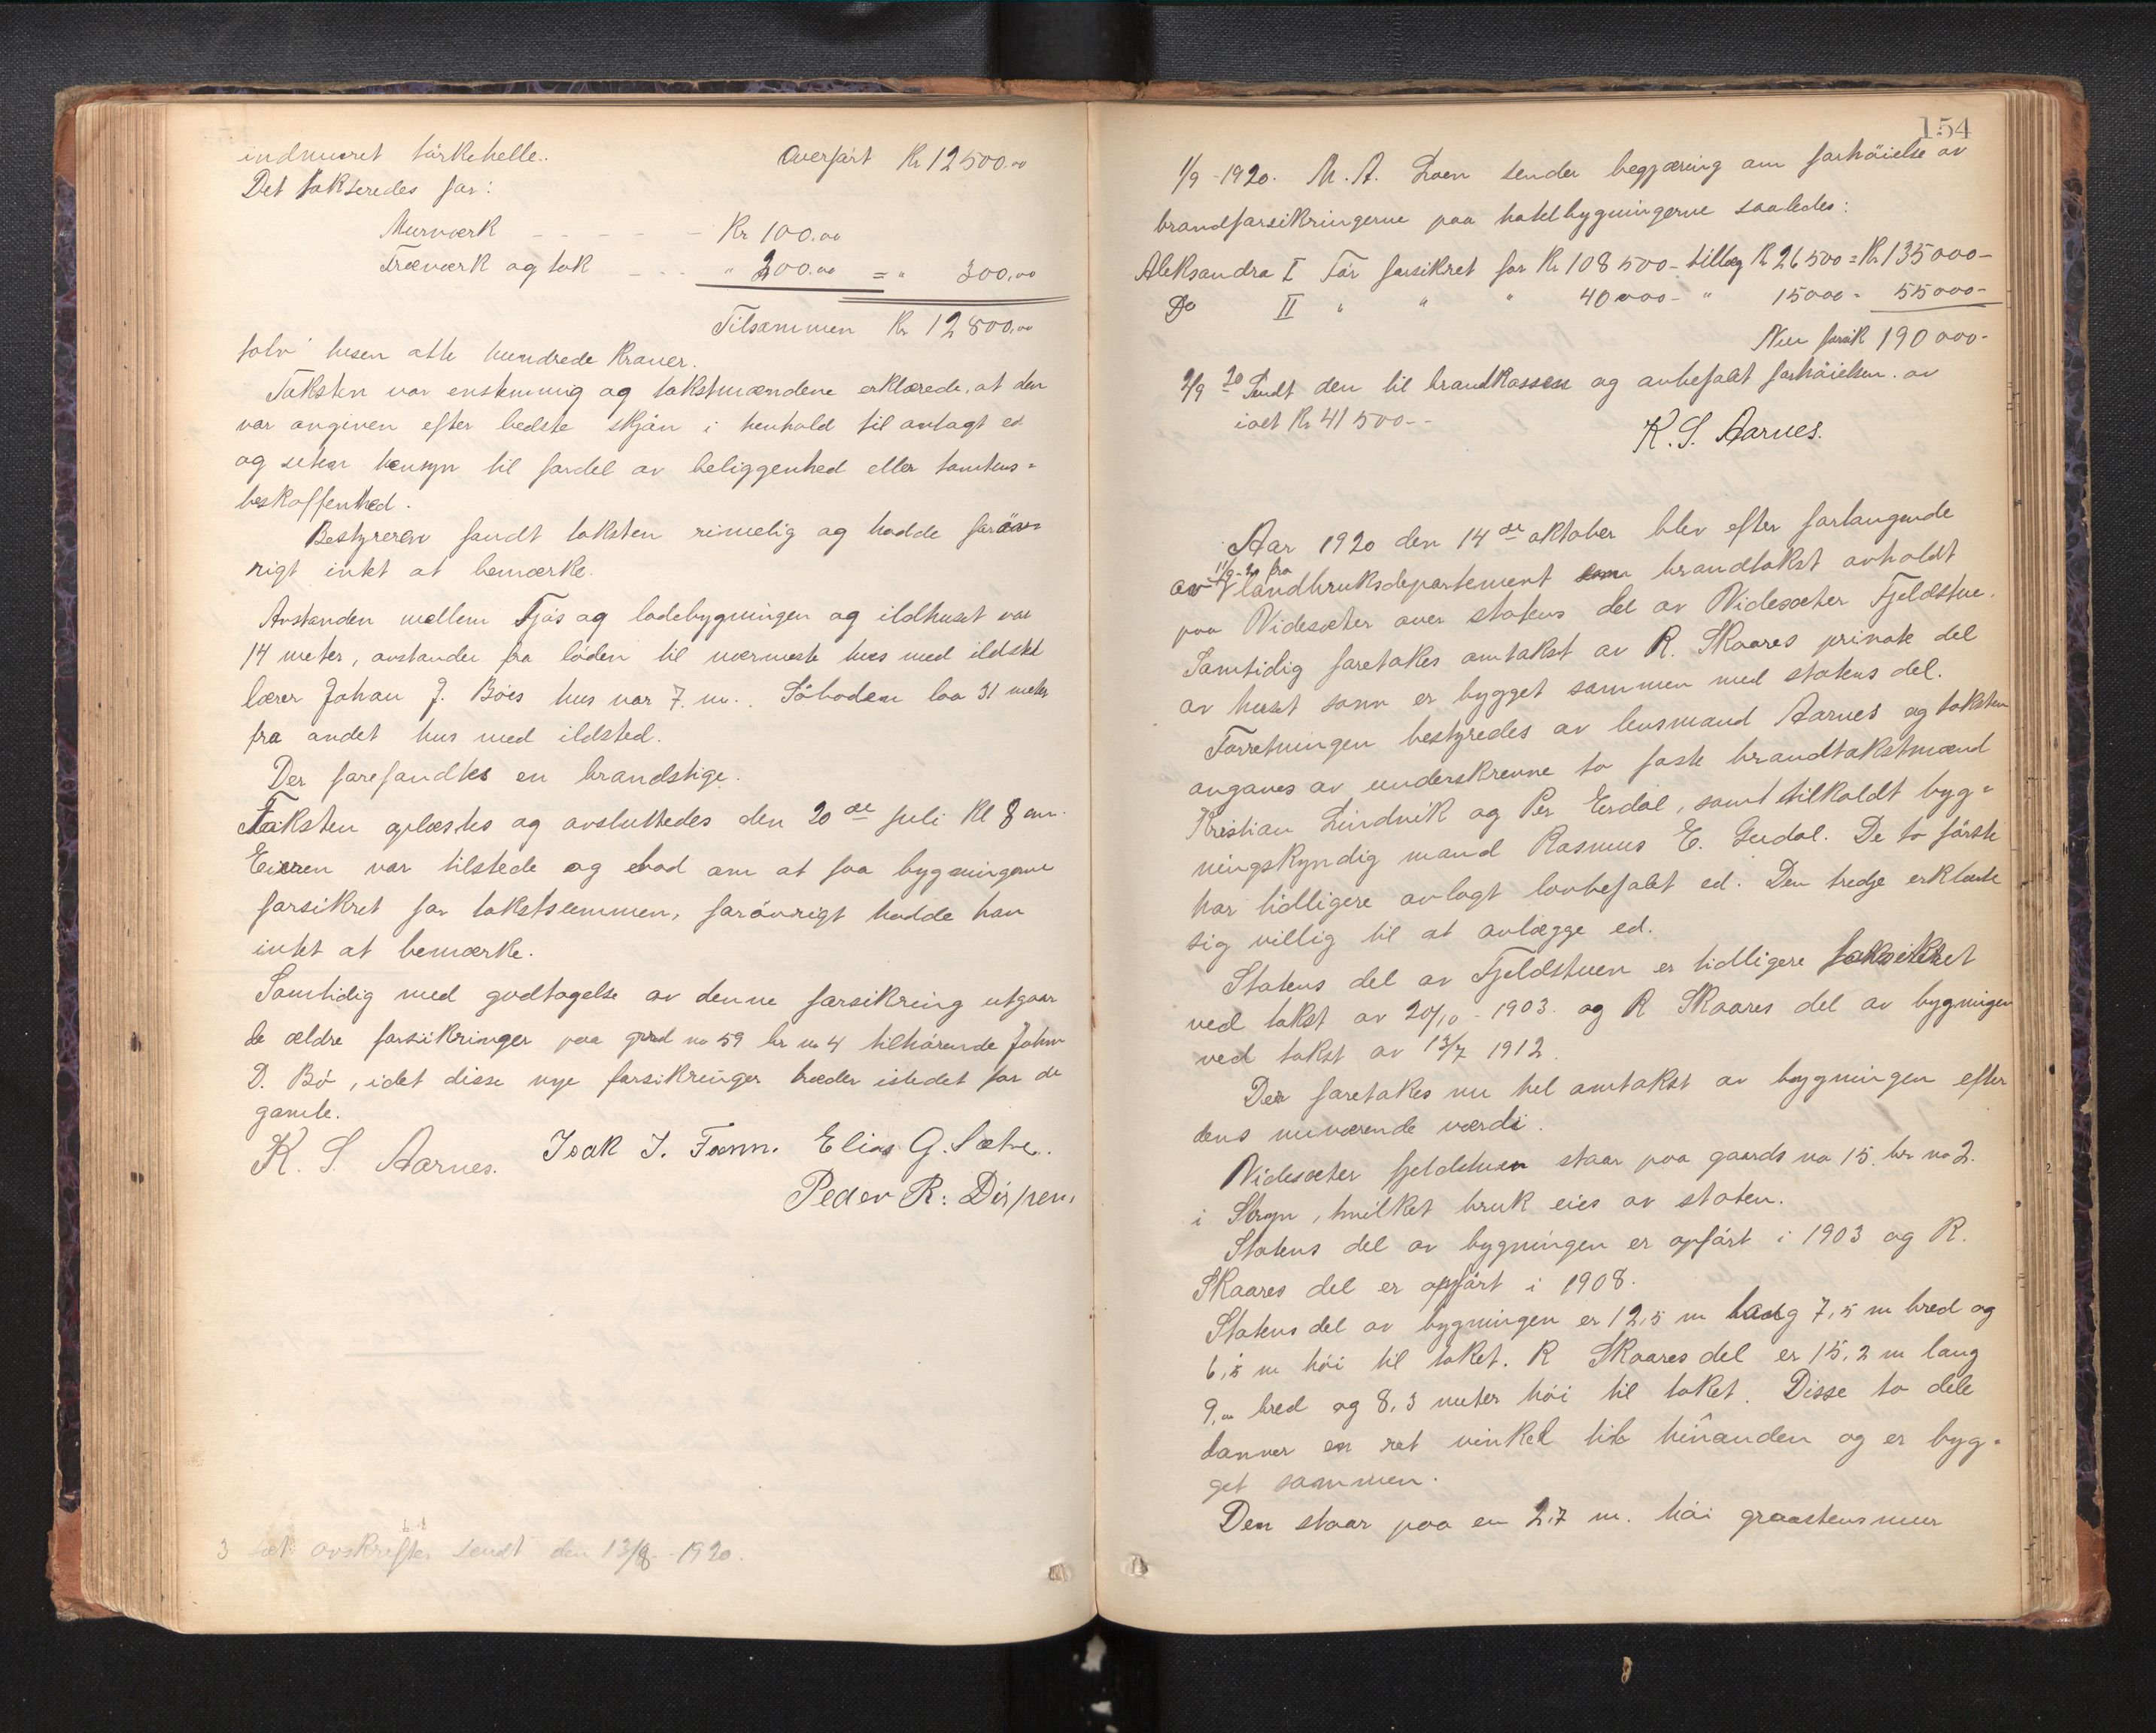 indmuret tørkehelle.. Overført Kr 12500.00
Det takseredes for:
Murværk - - - - - Kr 100.00
Træværk og tak - - - " 200.00 = " 300.00
Tilsammen Kr 12800.00
tolv tusen otte hundrede Kroner.
Taksten var enstemmig og takstmændene erklærede, at den
var angiven efter bedste skjøn i henhold til avlagt ed
og uten hensyn til fordel av beliggenhed eller tomtens=
beskaffenhed.
Bestyreren fandt taksten rimelig og hadde forøv=
rigt intet at bemærke.
Avstanden mellem Fjøs og ladebygningen og ildhuset var
14 meter, avstanden fra løden til nærmeste hus med ildsted
lærer Johan J. Bøes hus var 7. m.. Søboden laa 31 meter
fra andet hus med ildsted.
Der forefandtes en brandstige.
Taksten oplæstes og avsluttedes den 20de juli Kl 8 em.
Eieren var tilstede og bad om at faa bygningene
forsikret for takstsummen, forøvrigt hadde han
intet at bemærke.
Samtidig med godtagelse av denne forsikring utgaar
de ældre forsikringer paa gaard no 59 br no 4 tilhørende Johan
D. Bø, idet disse nye forsikringer træder istedet for de
gamle.
K. S. Aarnes. Isak I. Tonn. Elias G. Sætre.
Peder R. Dispen.
3 sæt avskrifter sendt den 13/8 - 1920.
154
1/9 - 1920. M. A. Loen sender begjæring om forhøielse av
brandforsikringerne paa hotelbygningerne saaledes:
Aleksandra I Før forsikret for Kr 108500 - tillæg Kr 26500 = Kr 135000 -
Do II " " " 40000 - " 15000 - 55000 -
Nu forsik 190000 -
2/9 20 Sendt den til brandkassen og anbefalt forhøielsen av
ialt Kr 41500 - -
K. S. Aarnes.
Aar 1920 den 14de oktober blev efter forlangende
11/9-20 fra
av landbruksdepartement brandtakst avholdt
paa Videsæter over statens del av Videsæter Fjeldstue.
Samtidig foretakes omtakst av R. Skaares private del
av huset som er bygget sammen med statens del.
Forretningen bestyredes av lensmand Aarnes og taksten
angaves av underskrevne to faste brandtakstmænd
Kristian Lindvik og Per Eirdal, samt tilkaldt byg=
ningskyndig mand Rasmus E. Guddal. De to første
har tidligere avlagt lovbefalet ed. Den tredje erklærte
sig villig til at avlægge ed.
Statens del av Fjeldstuen er tidligere forsikret
ved takst av 20/10 - 1903. og R Skaares del av bygningen
ved takst av 13/7 1912.
Der foretakes nu hel omtakst av bygningen efter
dens nuværende værdi.
Videsæter fjeldstuen staar paa gaards no 15. br no 2.
i Stryn, hvilket bruk eies av staten.
Statens del av bygningen er opført i 1903 og R.
Skaares del er opført i 1908.
Statens del av bygningen er 12,5 m lang 7,5 m bred og
6,5 m høi til taket. R Skaares del er 15,2 m lang
9,m bred og 8,3 meter høi til taket. Disse to dele
danner en ret vinkel til hinanden og er byg=
get sammen.
Den staar paa en 2.7 m. høi graastensmur